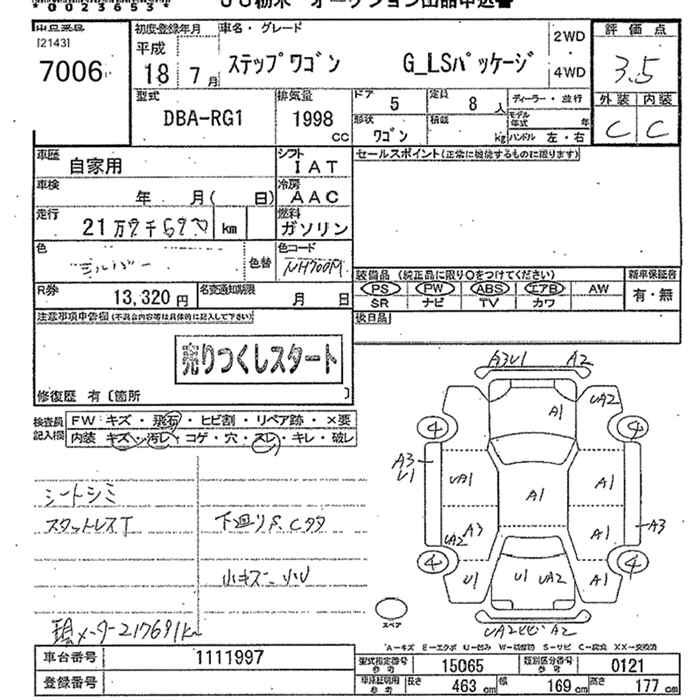 *0023653*
ＪＵ栃木 オークション出品申込書
出品番号
[2143]
7006
初度登録年月
平成
18 7月
車名・グレード
ステップワゴン G_LSパッケージ
2WD
・
4WD
評価点
3.5
外装 内装
C C
型式
DBA-RG1
排気量
1998 CC
ドア 5
定員 8 人
形状 ワゴン
積載 kg
ディーラー・並行
モデル年式 年
ハンドル 左・右
車歴 自家用
シフト IAT
セールスポイント(正常に機能するものに限ります)
車検 年 月( 日)
冷房 AAC
走行 21万 km
燃料 ガソリン
色 シルバー
色替
色コード NH700M
装備品 (純正品に限り○をつけてください)
新車保証書
PS PW ABS エアB AW
有・無
SR ナビ TV カワ
R券 13,320円
名変通知期限 月 日
後日品
注意事項申告欄(不具合内容等は具体的に記入して下さい)
売りつくしスタート
修復歴 有〔箇所 〕
検査員記入欄
FW キズ・飛石・ヒビ割・リペア跡・×要
内装 キズ・汚レ・コゲ・穴・スレ・キレ・破レ
シートシミ
スタットレスT
下廻りS.Cタタ
小キズ、小U
現メーター217691K
A3U1 A2
A1 UA2
4 4
A3
U1
UA1 A1 A1
A3
UA2 A3 A1
4 4
U1 U1 UA2 A1
スペア
A2
A－キズ E－エクボ U－凹み W－補修跡 S－サビ C－腐食 XX－交換済
車台番号 1111997
登録番号
型式指定番号 参考 15065
類別区分番号 参考 0121
車庫証明用 参考 長さ 463 cm 幅 169 cm 高さ 177 cm